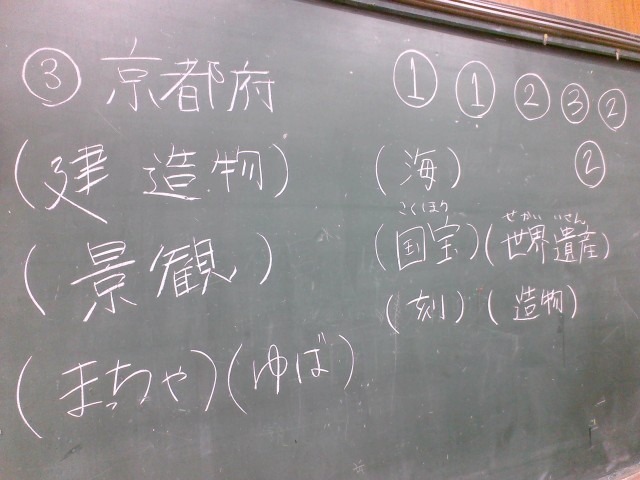 ③ 京都府
(建造物)
(景観)
(まっちゃ)(ゆば)
① ① ② ③ ②
②
(海)
こくほう せかいいさん
(国宝)(世界遺産)
(刻)(造物)